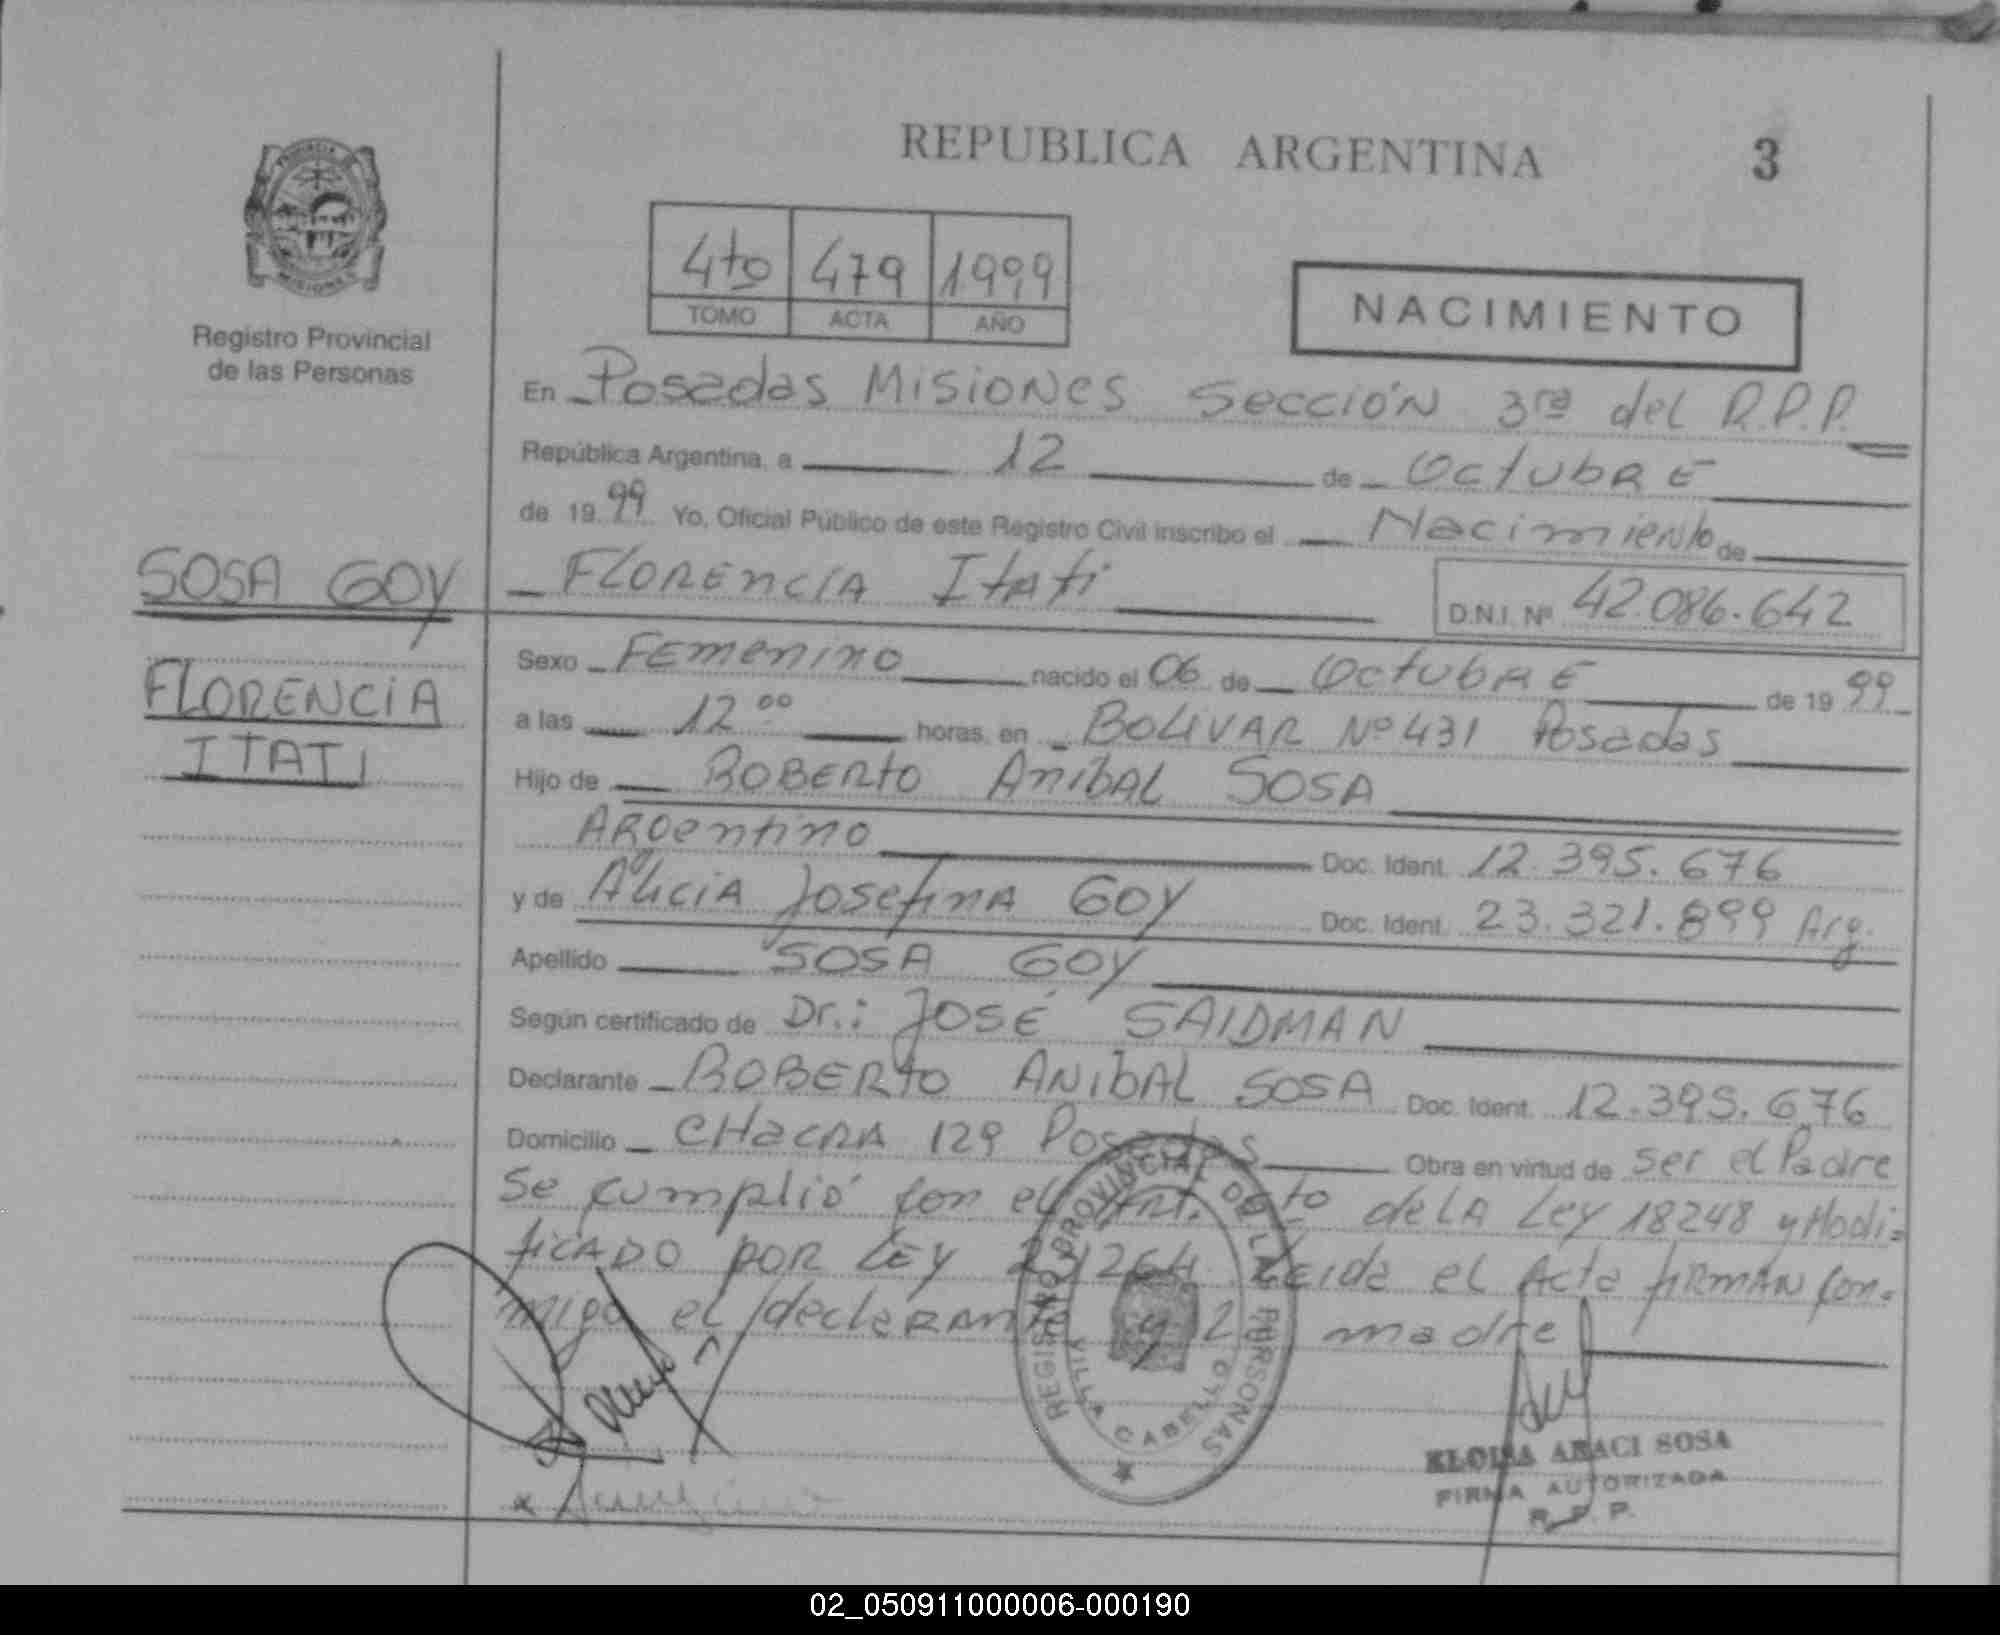 REPUBLICA ARGENTINA 3
PROVINCIA DE MISIONES
Registro Provincial
de las Personas
4to 479 1999
TOMO ACTA AÑO
NACIMIENTO
En Posadas Misiones Sección 3ra del R.P.P.
República Argentina, a 12 de Octubre
de 1999 Yo, Oficial Público de este Registro Civil inscribo el Nacimiento de
SOSA GOY
FLORENCIA
ITATI
Florencia Itati D.N.I. Nº 42.086.642
Sexo Femenino nacido el 06 de Octubre de 1999
a las 12 00 horas, en Bolivar Nº 431 Posadas
Hijo de Roberto Anibal Sosa
Argentino Doc. Ident. 12.395.676
y de Alicia Josefina Goy Doc. Ident. 23.321.899 Arg.
Apellido SOSA GOY
Según certificado de Dr.: José SAIDMAN
Declarante Roberto Anibal Sosa Doc. Ident. 12.395.676
Domicilio Chacra 129 Posadas Obra en virtud de ser el Padre
Se cumplió con el Art. de la Ley 18248 y Modi=
ficado por Ley 24264 Leida el Acta firman con-
migo el declarante y la madre
REGISTRO PROVINCIAL DE LAS PERSONAS
VILLA CABELLO
ELOISA ARACI SOSA
FIRMA AUTORIZADA
R. P. P.
02_050911000006-000190